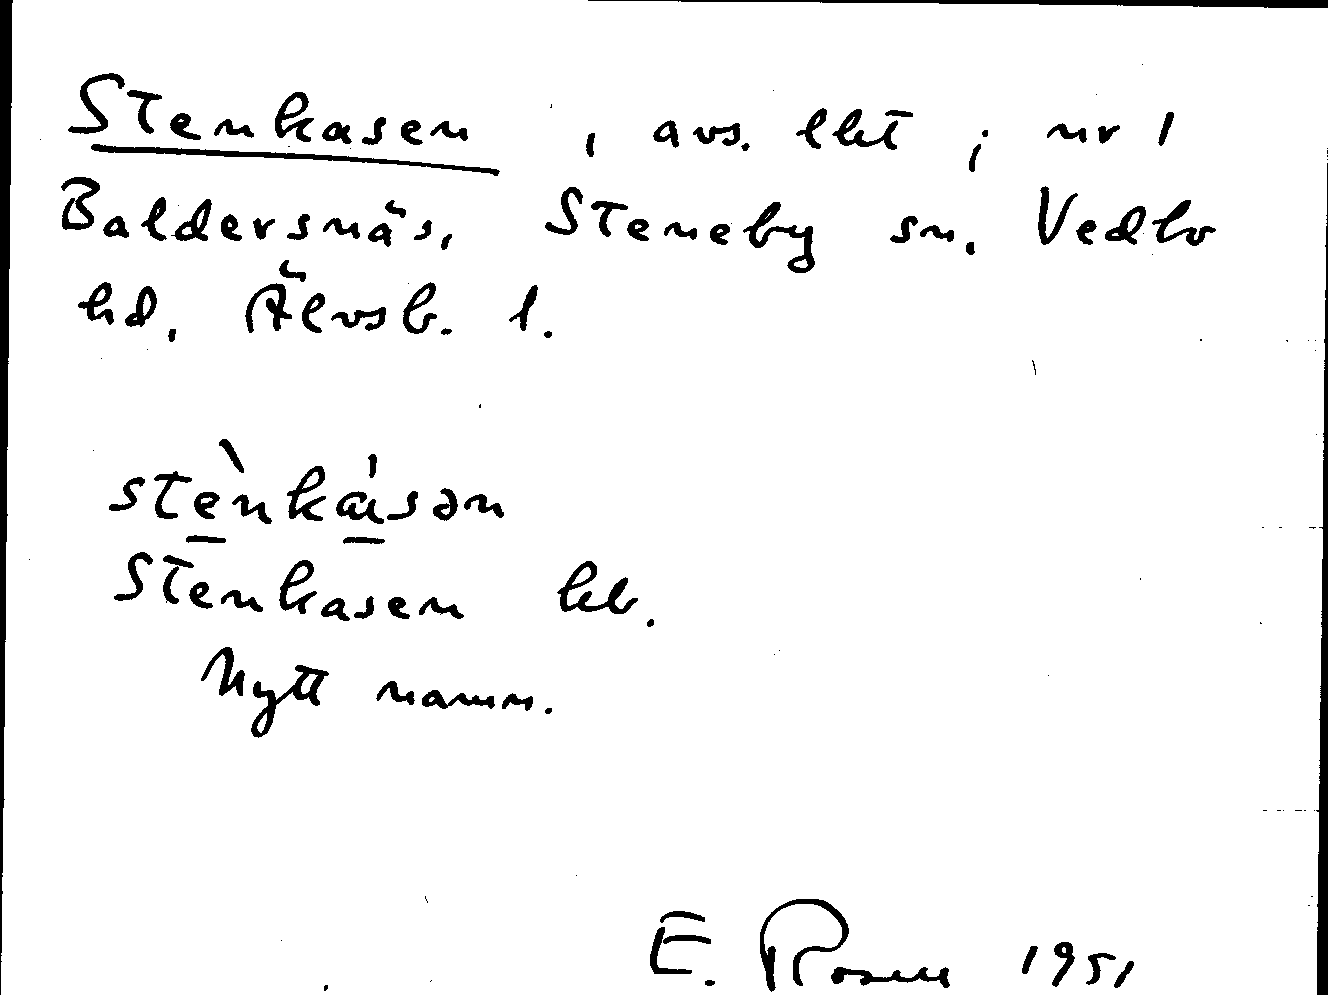 Stenkasen, avs. lht i nr 1
Baldersnäs, Steneby sn. Vedbo
hd. Älvsb. l.
stènkáisən
Stenkasen kb.
Nytt namn.
E. Rosell 1951